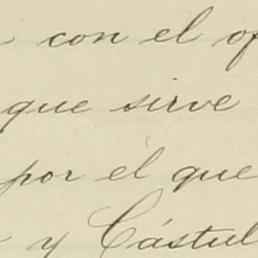 con el of
que sirve
por él que
y Cástul